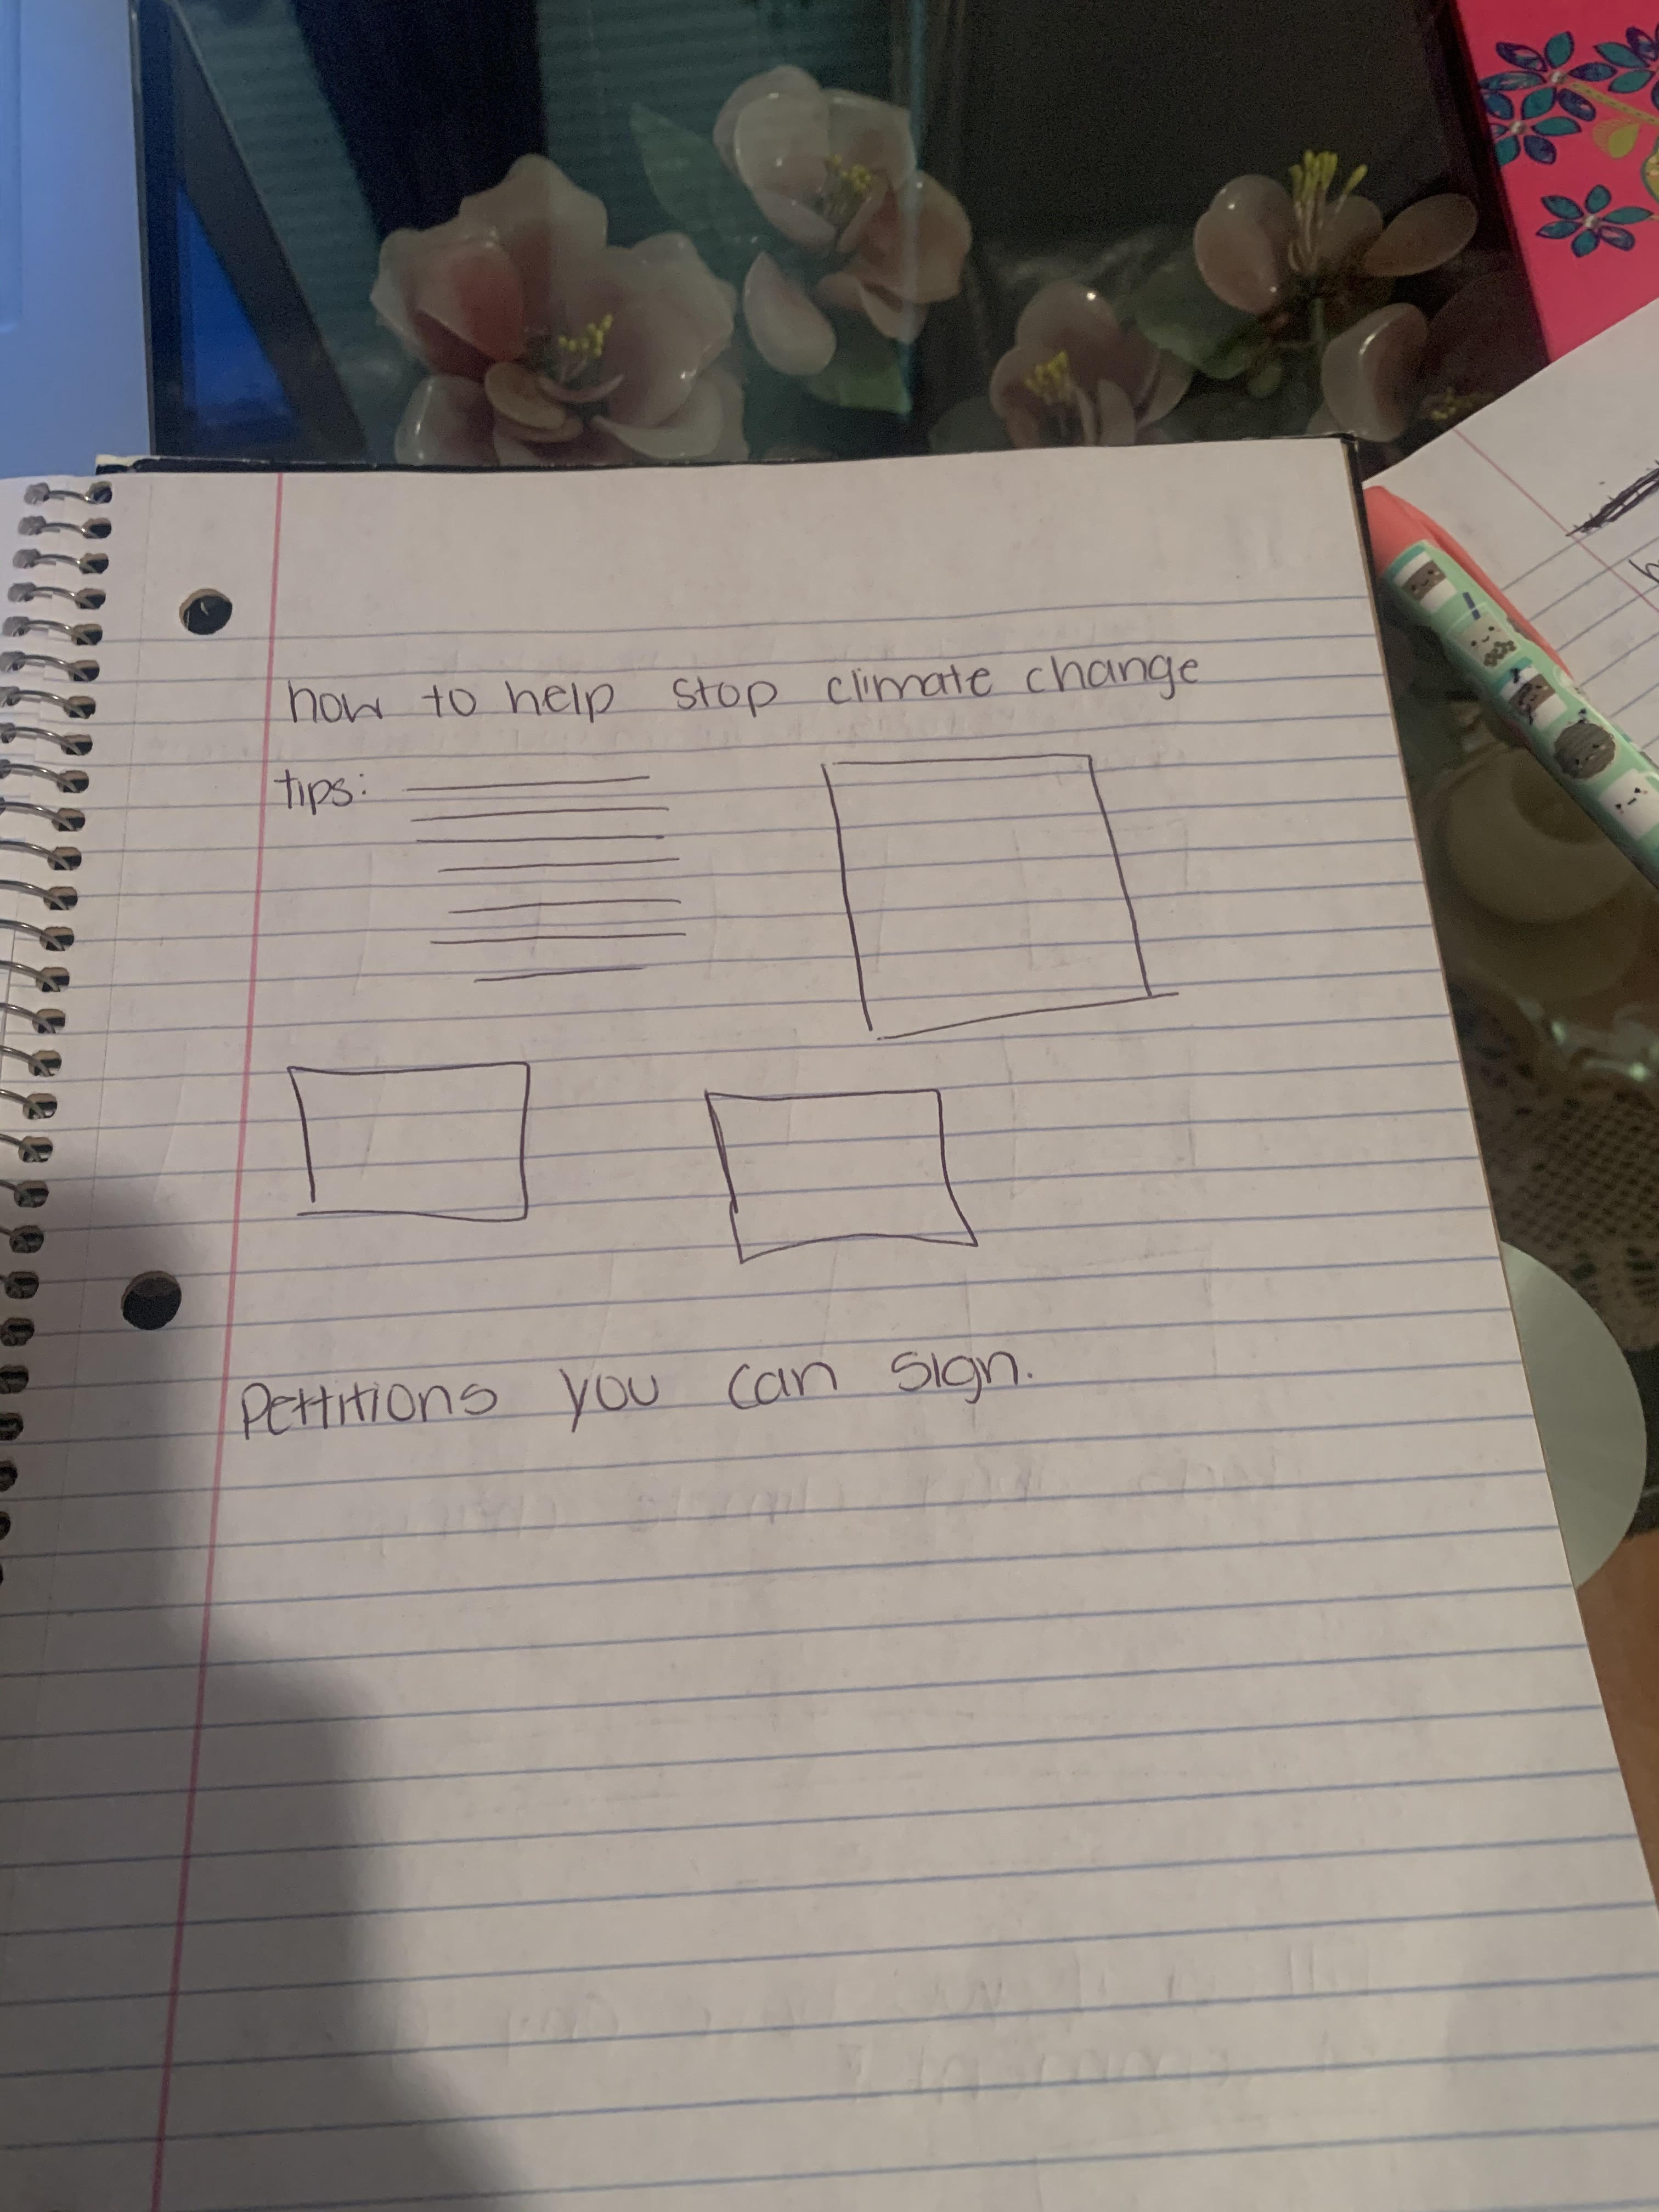 how to help stop climate change
tips:
Pettitions you can sign.